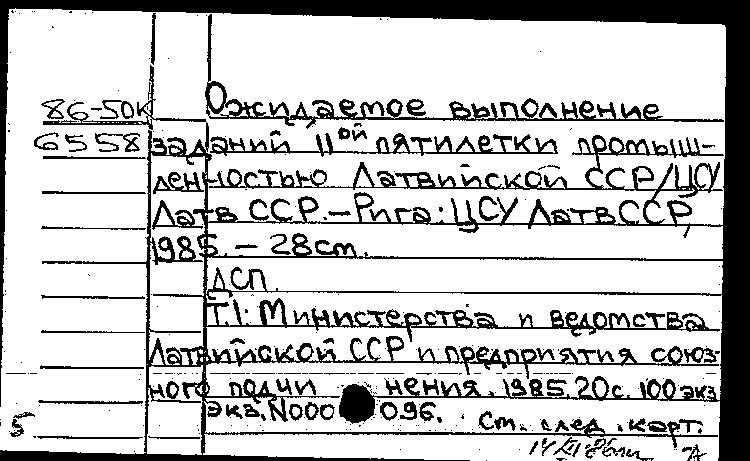 86-50К Ожидаемое выполнение
6558 заданий 11ой пятилетки промыш-
ленностью Латвийской ССР/ЦСУ
Латв ССР.-Рига: ЦСУ ЛатвССР,
1985. - 28 ст.
ДСП.
Т.1: Министерства и ведомства
Латвийской ССР и предприятия союз-
ного подчи нения. 1985. 20с. 100 экз
экз. N000 096. Ст. след. карт.
5